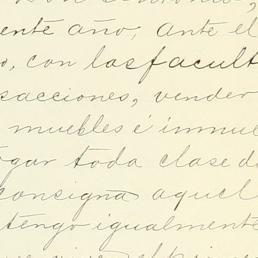 ente año, ante el
o, con las facult
sacciones, vender
muebles é inmue
ogar toda clase de
consigna aquel
tengo igualmente